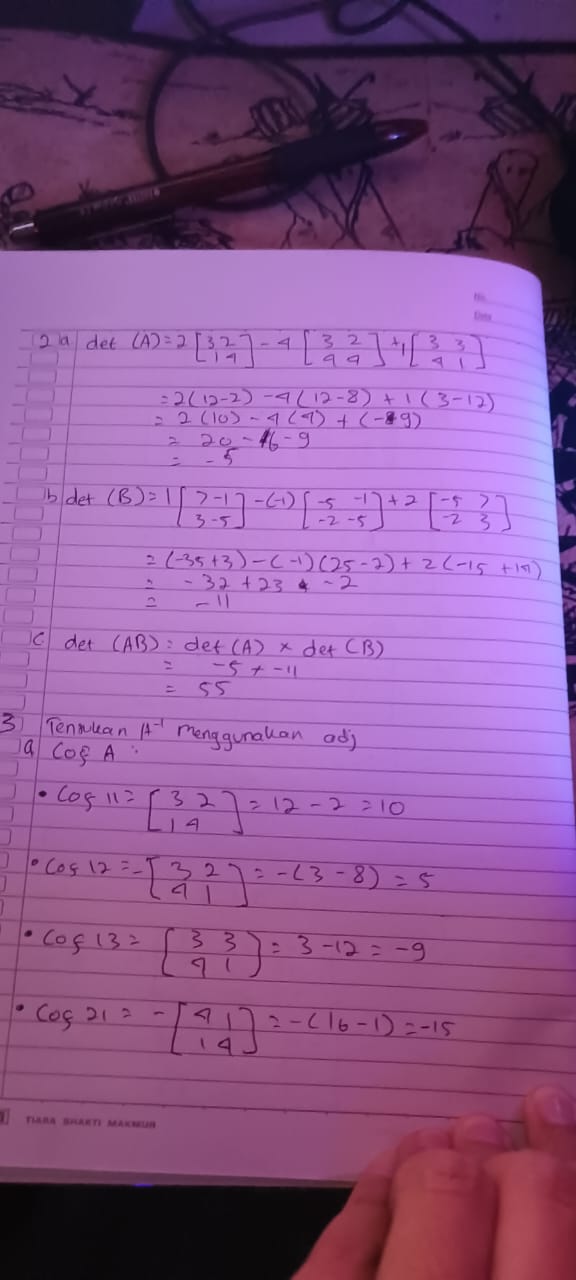 No
Date
2 a det (A) = 2 [3 2 / 1 4] - 4 [3 2 / 4 4] + 1 [3 3 / 4 1]
= 2(12-2) - 4(12-8) + 1(3-12)
= 2(10) - 4(4) + (-9)
= 20 - 16 - 9
= -5
b det (B) = 1 [7 -1 / 3 -5] - (-1) [-5 -1 / -2 -5] + 2 [-5 7 / -2 3]
= (-35+3) - (-1)(25-2) + 2(-15+14)
= -32 + 23 - 2
= -11
c det (AB) = det (A) × det (B)
= -5 × -11
= 55
3 Tentukan A⁻¹ menggunakan adj
a Cof A :
• Cof 11 = [3 2 / 1 4] = 12 - 2 = 10
• Cof 12 = - [3 2 / 4 1] = -(3 - 8) = 5
• Cof 13 = [3 3 / 4 1] = 3 - 12 = -9
• Cof 21 = - [4 1 / 1 4] = -(16 - 1) = -15
TIARA BHAKTI MAKMUR